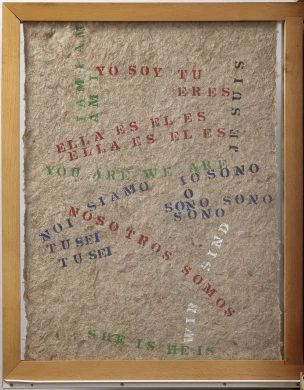 I AM I AM
AM I
YO SOY TU
ERES
JE SUIS
ELLA ES EL ES
ELLA ES EL ES
YOU ARE WE ARE
IO SONO
O
NOI SIAMO
SONO SONO
SONO
NOSOTROS SOMOS
TU SEI
TU SEI
WIR SIND
SHE IS HE IS